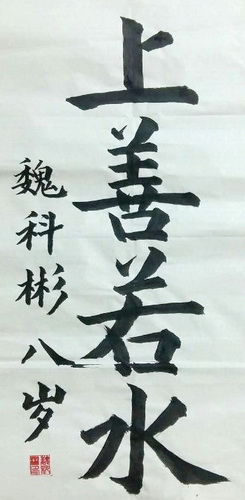 上善若水
魏科彬八岁